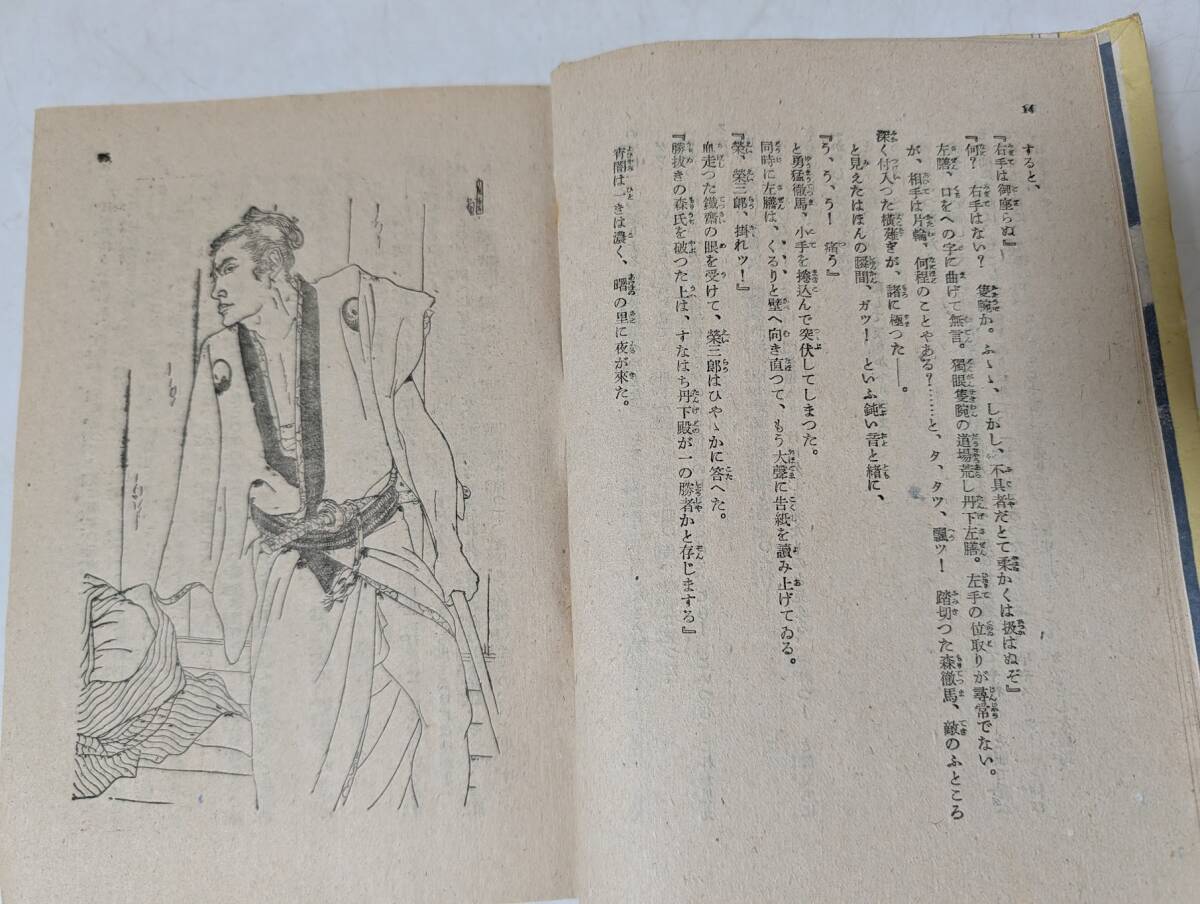 14
すると、
『右手は御座らぬ』
『何？　右手はない？　隻腕か。ふゝゝ、しかし、不具者だとて柔かくは扱はぬぞ』
左膳、口をへの字に曲げて無言。獨眼隻腕の道場荒し丹下左膳。左手の位取りが尋常でない。
が、相手は片輪、何程のことやある？……と、タ、タツ、飄ッ！　踏切つた森徹馬、敵のふところ
深く付入つた横薙ぎが、諸に極つた――。
と見えたはほんの瞬間、ガッ！　といふ鈍い音と緒に、
『う、う、う！　痛う』
と勇猛徹馬、小手を捲込んで突伏してしまつた。
同時に左膳は、くるりと壁へ向き直つて、もう大聲に告紙を讀み上げてゐる。
『榮、榮三郎、掛れッ！』
血走つた鐵齋の眼を受けて、榮三郎はひやゝかに答へた。
『勝拔きの森氏を破つた上は、すなはち丹下殿が一の勝者かと存じまする』
宵闇は一きは濃く、曙の里に夜が來た。